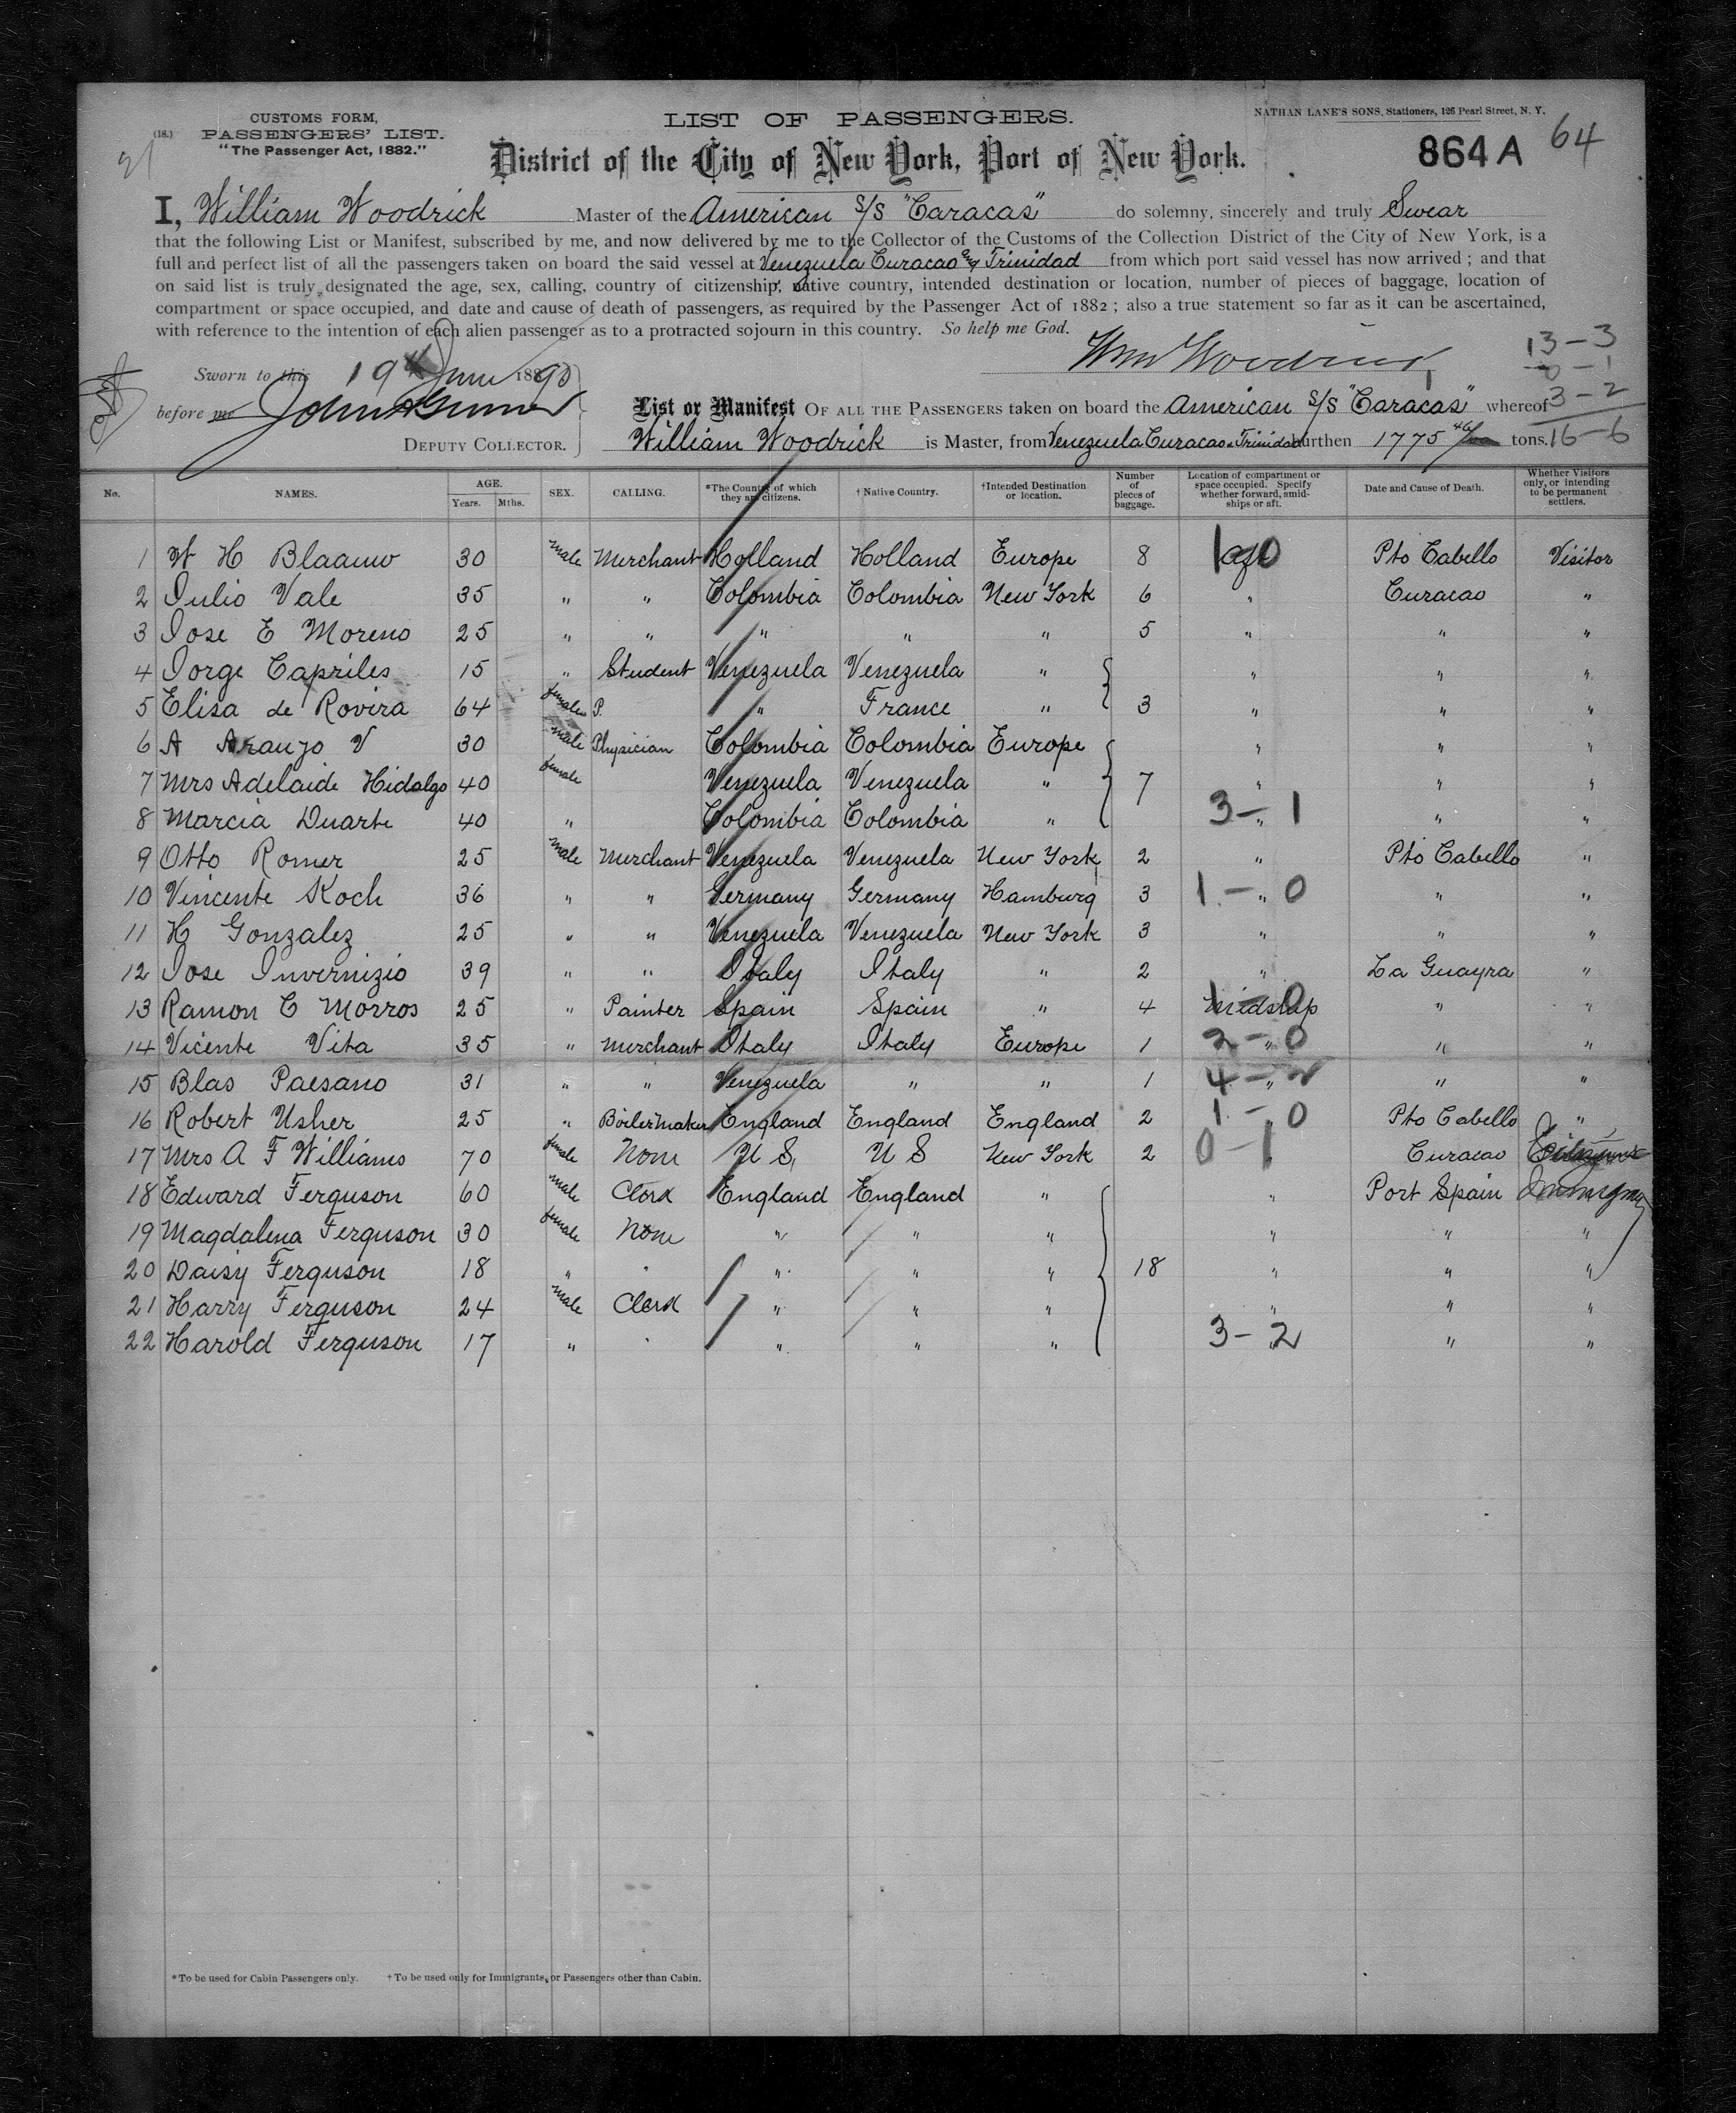 CUSTOMS FORM,
(18.) PASSENGERS' LIST.
"The Passenger Act, 1882."
LIST OF PASSENGERS.
District of the City of New York, Port of New York.
NATHAN LANE'S SONS, Stationers, 126 Pearl Street, N. Y.
864 A 64
I, William Woodrick Master of the American S/S "Caracas" do solemny, sincerely and truly Swear
that the following List or Manifest, subscribed by me, and now delivered by me to the Collector of the Customs of the Collection District of the City of New York, is a
full and perfect list of all the passengers taken on board the said vessel at Venezuela Curacao & Trinidad from which port said vessel has now arrived ; and that
on said list is truly designated the age, sex, calling, country of citizenship, native country, intended destination or location, number of pieces of baggage, location of
compartment or space occupied, and date and cause of death of passengers, as required by the Passenger Act of 1882 ; also a true statement so far as it can be ascertained,
with reference to the intention of each alien passenger as to a protracted sojourn in this country. So help me God.
Wm Woodrick
13 – 3
0 – 1
3 – 2
16 – 6
Sworn to this 19th June 1890
before me
DEPUTY COLLECTOR.
List or Manifest OF ALL THE PASSENGERS taken on board the American S/S "Caracas" whereof
William Woodrick is Master, from Venezuela Curacao & Trinidad burthen 1775 46/100 tons.
No. NAMES. AGE. Years. Mths. SEX. CALLING. *The Country of which they are citizens. † Native Country. †Intended Destination or location. Number of pieces of baggage. Location of compartment or space occupied. Specify whether forward, amidships or aft. Date and Cause of Death. Whether Visitors only, or intending to be permanent settlers.
1 W H Blaauw 30 male Merchant Holland Holland Europe 8 aft 1 0 Pto Cabello Visitor
2 Julio Vale 35 " " Colombia Colombia New York 6 " Curacao "
3 Jose E Moreno 25 " " " " " 5 " " "
4 Jorge Capriles 15 " Student Venezuela Venezuela " " " "
5 Elisa de Rovira 64 female P. " France " 3 " " "
6 A Araujo V 30 male Physician Colombia Colombia Europe " " "
7 Mrs Adelaide Hidalgo 40 female Venezuela Venezuela " 7 " " "
8 Marcia Duarte 40 " Colombia Colombia " 3 – 1 " " "
9 Otto Romer 25 male Merchant Venezuela Venezuela New York 2 " Pto Cabello "
10 Vincente Koch 36 " " Germany Germany Hamburg 3 1 – 0 " " "
11 H Gonzalez 25 " " Venezuela Venezuela New York 3 " " "
12 Jose Invernizio 39 " " Italy Italy " 2 " La Guayra "
13 Ramon C Morros 25 " Painter Spain Spain " 4 midship 1 – 0 " "
14 Vicente Vita 35 " Merchant Italy Italy Europe 1 2 – 0 " " "
15 Blas Paesano 31 " " Venezuela " " 1 4 – 2 " " "
16 Robert Usher 25 " Boilermaker England England England 2 1 – 0 Pto Cabello "
17 Mrs A F Williams 70 female None U S, U S New York 2 0 – 1 Curacao
18 Edward Ferguson 60 male Clerk England England " " Port Spain
19 Magdalena Ferguson 30 female None " " " " " "
20 Daisy Ferguson 18 " " " " " 18 " " "
21 Harry Ferguson 24 male Clerk " " " " " "
22 Harold Ferguson 17 " " " " " 3 – 2 " " "
*To be used for Cabin Passengers only. †To be used only for Immigrants, or Passengers other than Cabin.